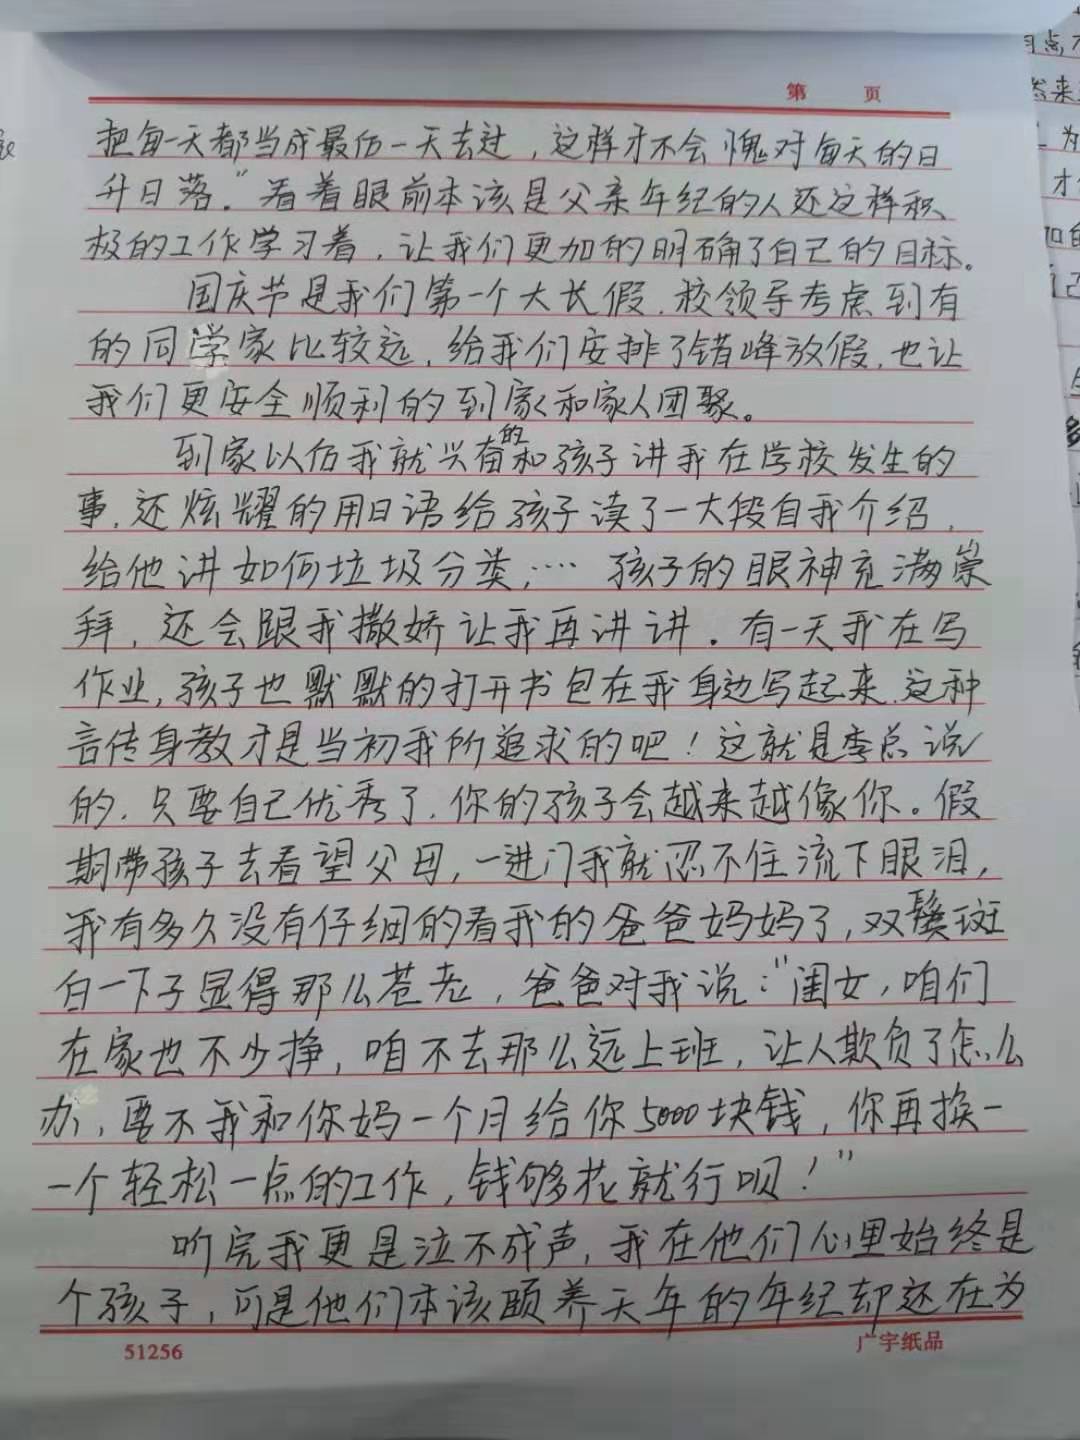 第 页
把每一天都当成最后一天去过，这样才不会愧对每天的日
升日落。”看着眼前本该是父亲年纪的人还这样积
极的工作学习着，让我们更加的明确了自己的目标。
国庆节是我们第一个大长假，校领导考虑到有
的同学家比较远，给我们安排了错峰放假，也让
我们更安全顺利的到家和家人团聚。
到家以后我就兴奋的和孩子讲我在学校发生的
事，还炫耀的用日语给孩子读了一大段自我介绍，
给他讲如何垃圾分类，…… 孩子的眼神充满崇
拜，还会跟我撒娇让我再讲讲。有一天我在写
作业，孩子也默默的打开书包在我身边写起来，这种
言传身教才是当初我所追求的吧！这就是李总说
的，只要自己优秀了，你的孩子会越来越像你。假
期带孩子去看望父母，一进门我就忍不住流下眼泪，
我有多久没有仔细的看我的爸爸妈妈了，双鬓斑
白一下子显得那么苍老，爸爸对我说：“闺女，咱们
在家也不少挣，咱不去那么远上班，让人欺负了怎么
办，要不我和你妈一个月给你5000块钱，你再换一
一个轻松一点的工作，钱够花就行呗！”
听完我更是泣不成声，我在他们心里始终是
个孩子，可是他们本该颐养天年的年纪却还在为
51256
广宇纸品